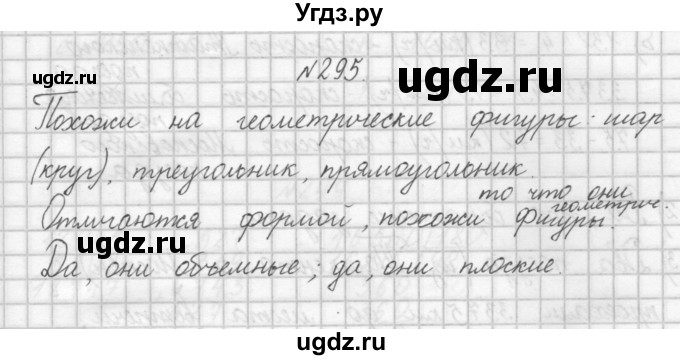 Угдз.ру
ugdz.ru
№295.
ugdz.ru
Похожи на геометрические фигуры: шар
(круг), треугольник, прямоугольник.
то что они
Отличаются формой, похожи геометрич. фигуры.
ugdz.ru
Да, они объемные; да, они плоские.
ugdz.ru
ugdz.ru